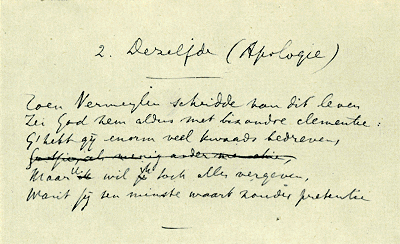 2. Dezelfde (Apologie)
Toen Vermeylen scheidde van dit leven
Zei God hem aldus met bizondre clementie:
G'hebt gij enorm veel kwaads bedreven,
Maar wil toch alles vergeven,
Want gij ten minste waart zonder pretentie